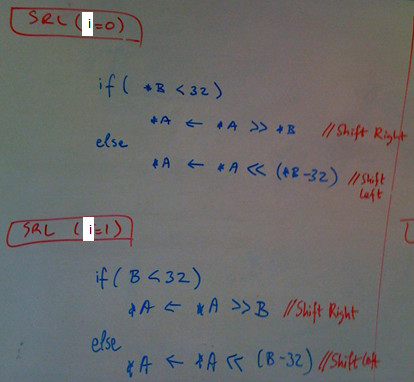 SRL (i=0)
if( *B < 32)
*A ← *A >> *B //Shift Right
else
*A ← *A << (*B-32) //Shift
Left
SRL (i=1)
if( B < 32)
*A ← *A >> B //Shift Right
else
*A ← *A << (B-32) //Shift Left